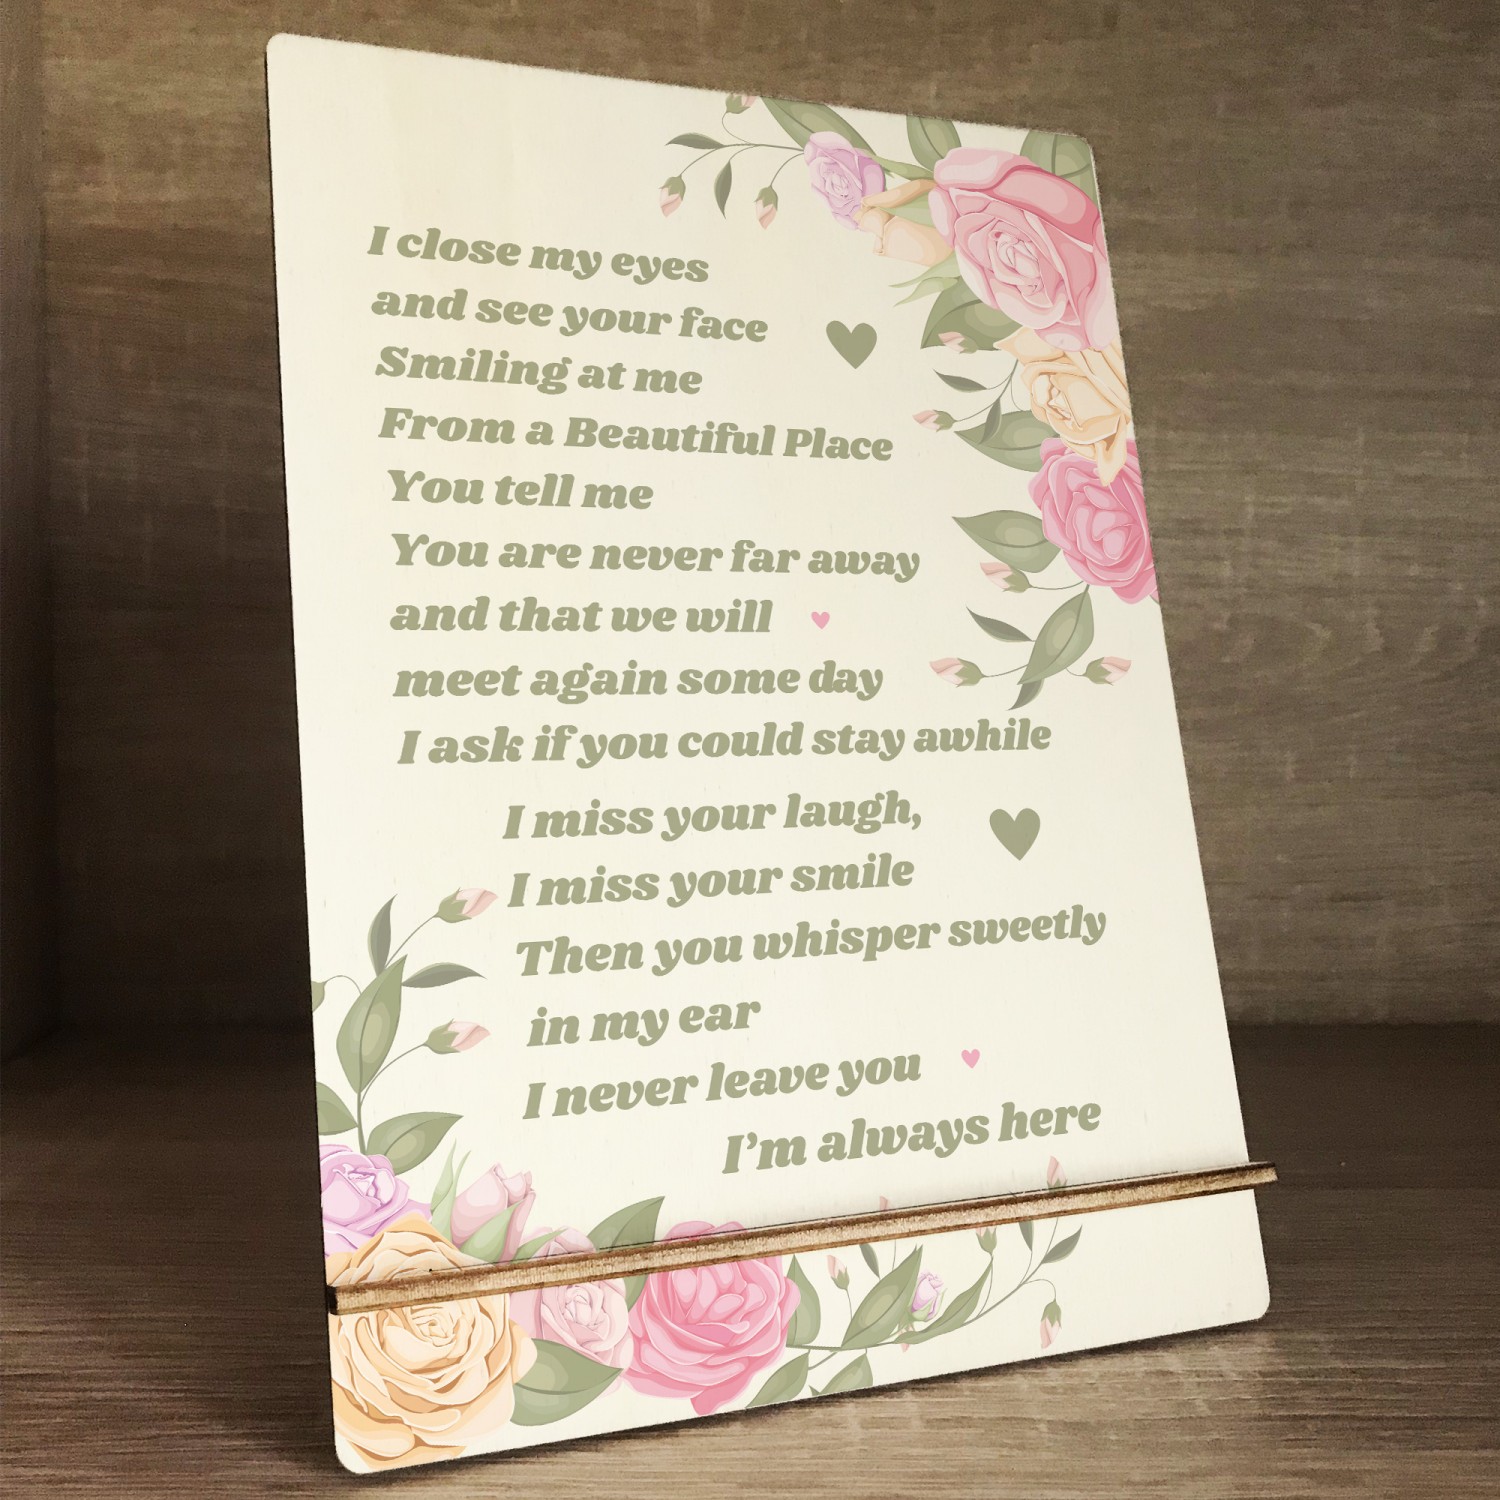 I close my eyes
and see your face
Smiling at me
From a Beautiful Place
You tell me
You are never far away
and that we will
meet again some day
I ask if you could stay awhile
I miss your laugh,
I miss your smile
Then you whisper sweetly
in my ear
I never leave you
I'm always here